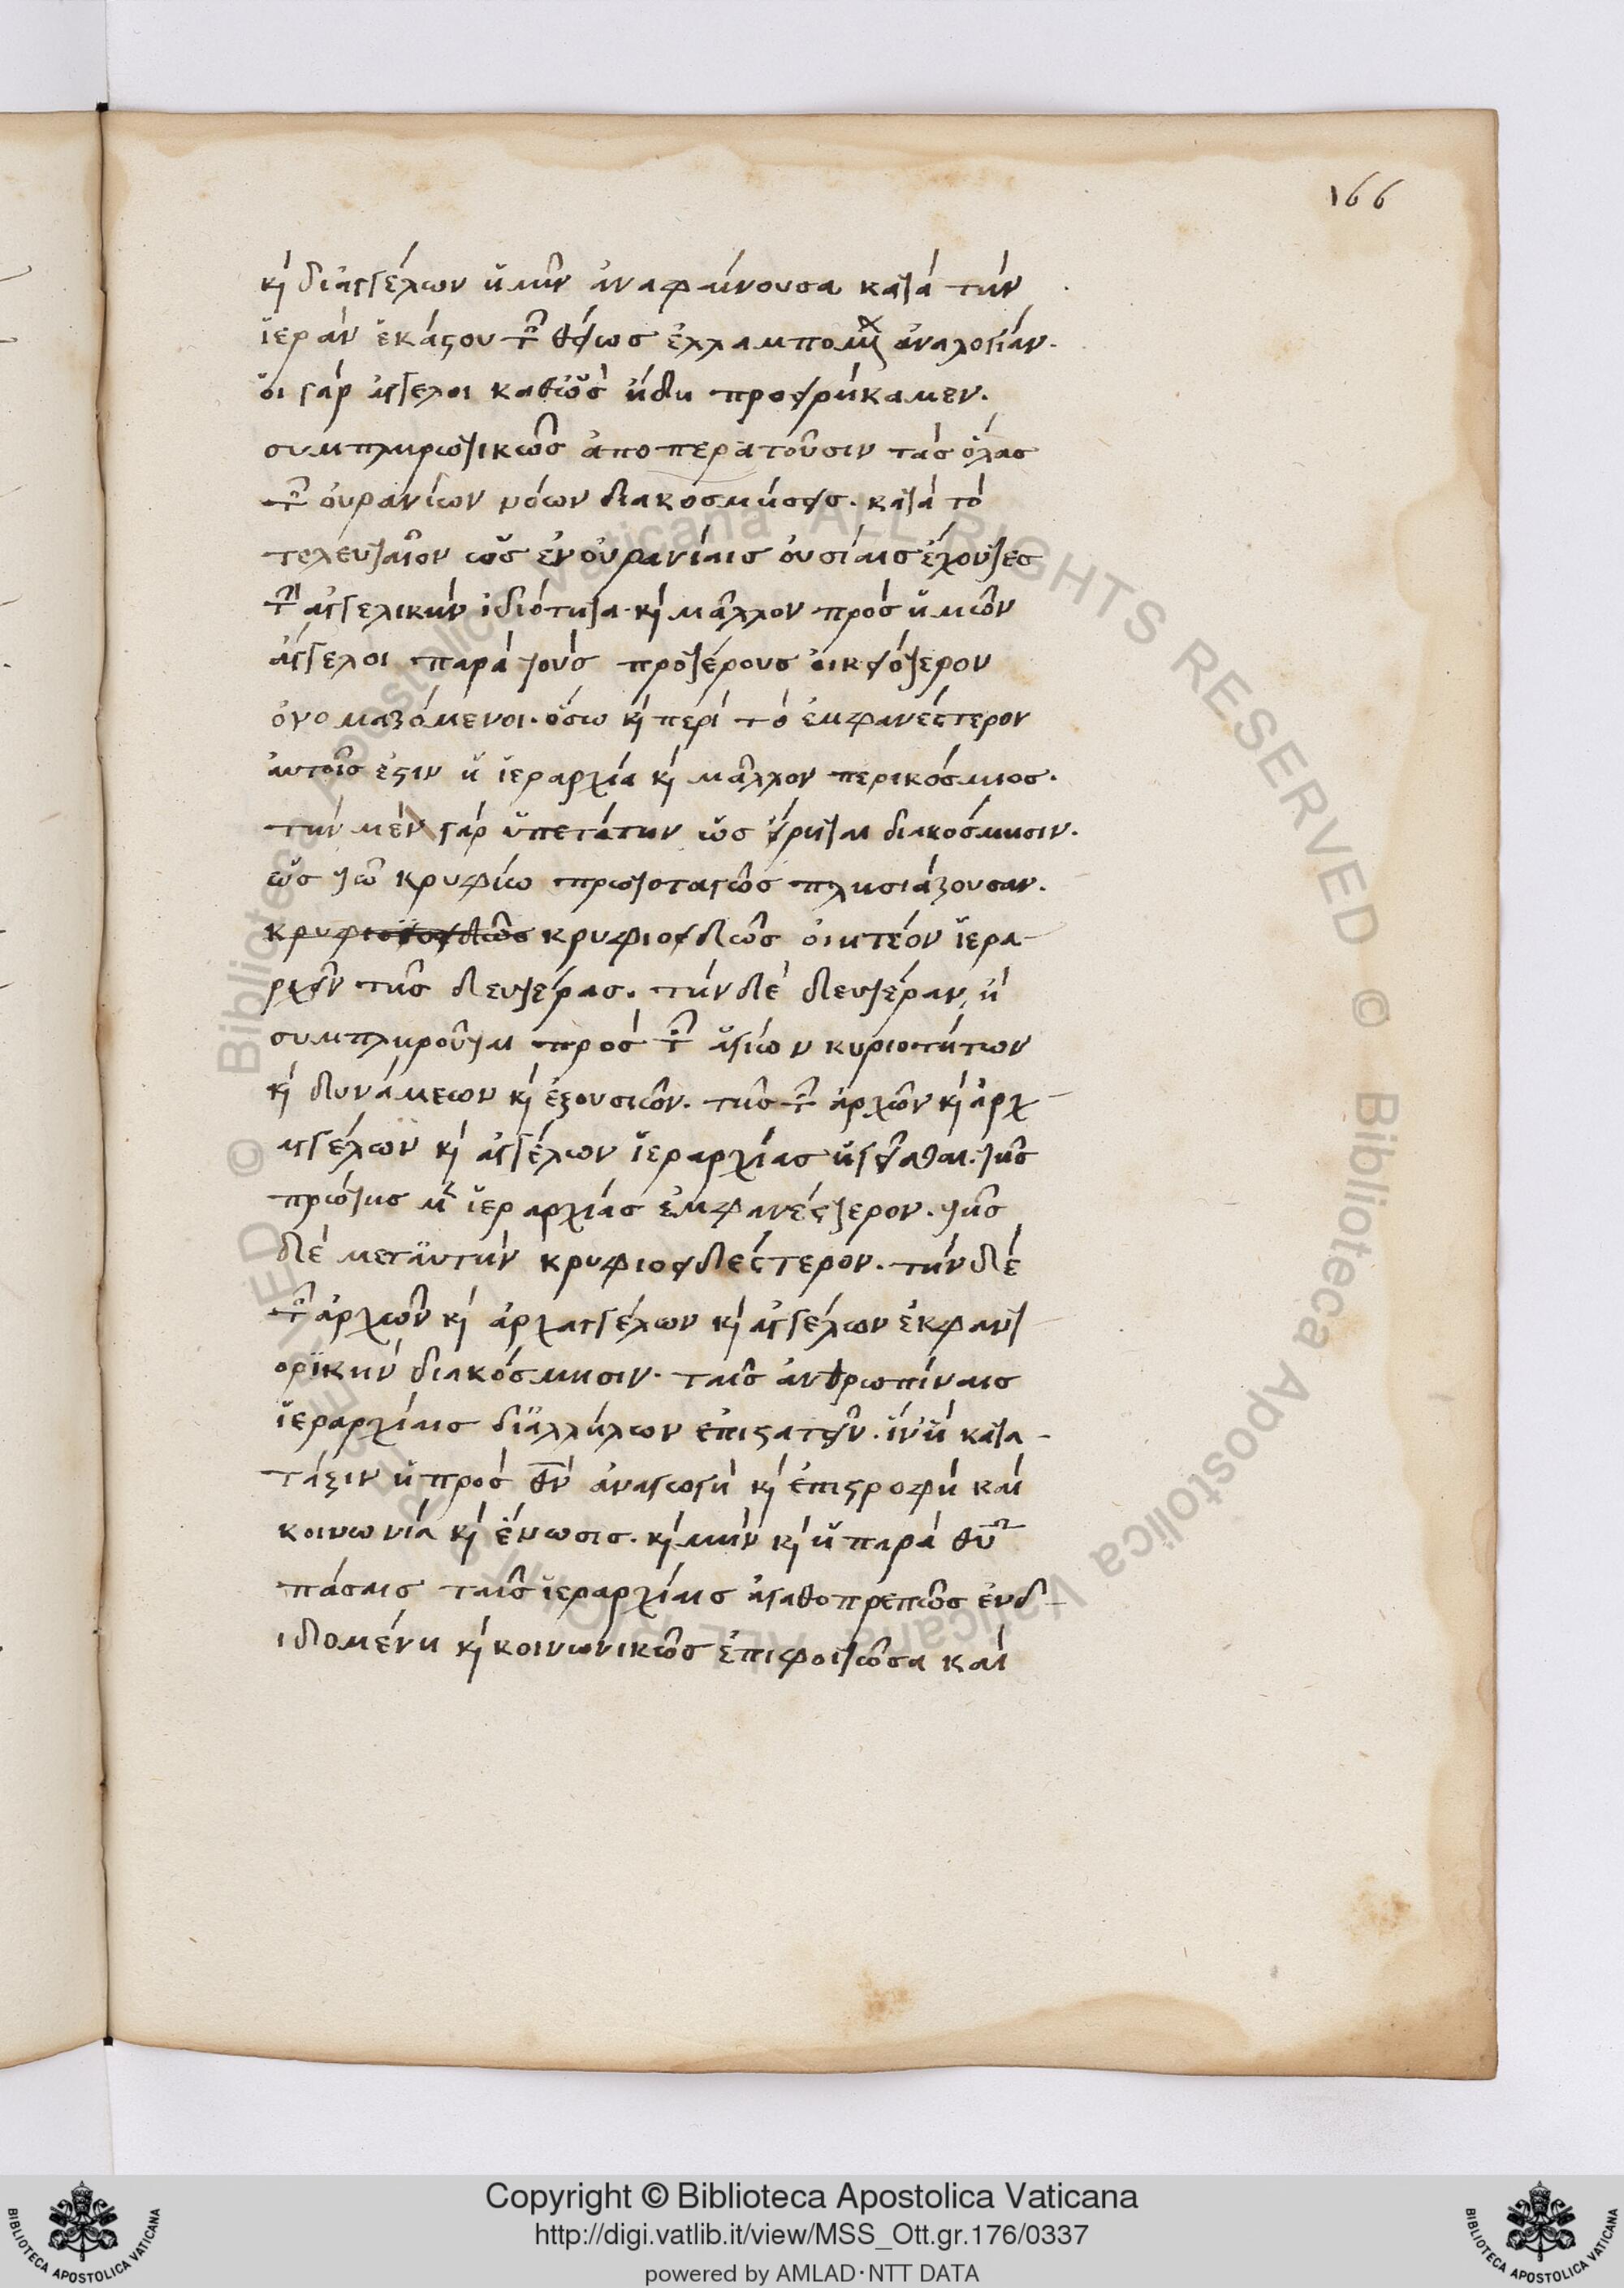 166
κὶ δι ἀγγέλων ἡμῖν ἀναφαίνουσα κατὰ τὴν
ἱερὰν ἑκάστου τῶν θείως ἐλλαμπομένων ἀναλογίαν.
οἱ γὰρ ἄγγελοι καθὼς ἤδη προειρήκαμεν.
συμπληρωτικῶς ἀποπερατοῦσιν τὰς ὅλας
τῶν οὐρανίων νόων διακοσμήσεις. κατὰ τὸ
τελευταῖον ὡς ἐν οὐρανίαις οὐσίαις ἔχοντες
τὴν ἀγγελικὴν ἰδιότητα κὶ μᾶλλον πρὸς ἡμῶν
ἄγγελοι παρὰ τοὺς προτέρους οἰκειότερον
ὀνομαζόμενοι. ὅσω κὶ περὶ τὸ ἐμφανέστερον
αὐτοῖς ἐστιν ἡ ἱεραρχία κὶ μᾶλλον περικόσμιος.
τὴν μὲν γὰρ ὑπερτάτην ὡς εἴρηται διακόσμησιν.
ὡς τῶ κρυφίω πρωτοταγῶς πλησιάζουσαν.
κρυφιοειδῶς οἰητέον ἱερα-
ρχεῖν τῆς δευτέρας. τὴν δὲ δευτέραν, ἣ
συμπληροῦται πρὸς τῶν ἁγίων κυριοτήτων
κὶ δυνάμεων κὶ ἐξουσιῶν. τῆς τῶν ἀρχῶν κὶ ἀρχ-
αγγέλων κὶ ἀγγέλων ἱεραρχίας ἡγεῖσθαι. τῆς
πρώτης μὲν ἱεραρχίας ἐμφανέστερον. τῆς
δὲ μεταὐτὴν κρυφιοειδέστερον. τὴν δὲ
τῶν ἀρχῶν κὶ ἀρχαγγέλων κὶ ἀγγέλων ἐκφαντ
ορϊκὴν διακόσμησιν. ταῖς ἀνθρωπίναις
ἱεραρχίαις δι ἀλλήλων ἐπιστατεῖν. ἵν ἦ κατα-
τάξιν ἡ πρὸς θν ἀναγωγὴ κὶ ἐπιστροφὴ καὶ
κοινωνία κὶ ἕνωσις. κὶ μὴν κὶ ἡ παρὰ θυ
πάσαις ταῖς ἱεραρχίαις ἀγαθοπρεπῶς ἐνδ-
ιδομένη κὶ κοινωνικῶς ἐπιφοιτῶσα καὶ
Copyright © Biblioteca Apostolica Vaticana
http://digi.vatlib.it/view/MSS_Ott.gr.176/0337
powered by AMLAD·NTT DATA